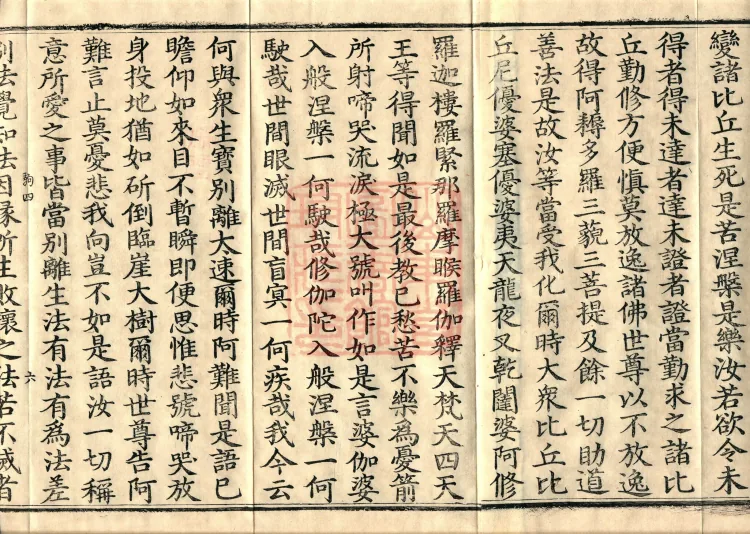 變諸比丘生死是苦涅槃是樂汝若欲令未
得者得未達者達未證者證當勤求之諸比
丘勤修方便慎莫放逸諸佛世尊以不放逸
故得阿耨多羅三藐三菩提及餘一切助道
善法是故汝等當受我化爾時大衆比丘比
丘尼優婆塞優婆夷天龍夜叉乾闥婆阿修
羅迦樓羅緊那羅摩睺羅伽釋天梵天四天
王等得聞如是最後教已愁苦不樂為憂箭
所射啼哭流淚極大號叫作如是言婆伽婆
入般涅槃一何駛哉修伽陀入般涅槃一何
駛哉世間眼滅世間盲冥一何疾哉我今云
何與衆生寶別離大速爾時阿難聞是語已
瞻仰如來目不暫瞬即便思惟悲號啼哭放
身投地猶如斫倒臨崖大樹爾時世尊告阿
難言止莫憂悲我向豈不如是語汝一切稱
意所愛之事皆當別離生法有法有為法差
駒四 六
別法覺知法因緣所生敗壞之法若不滅者